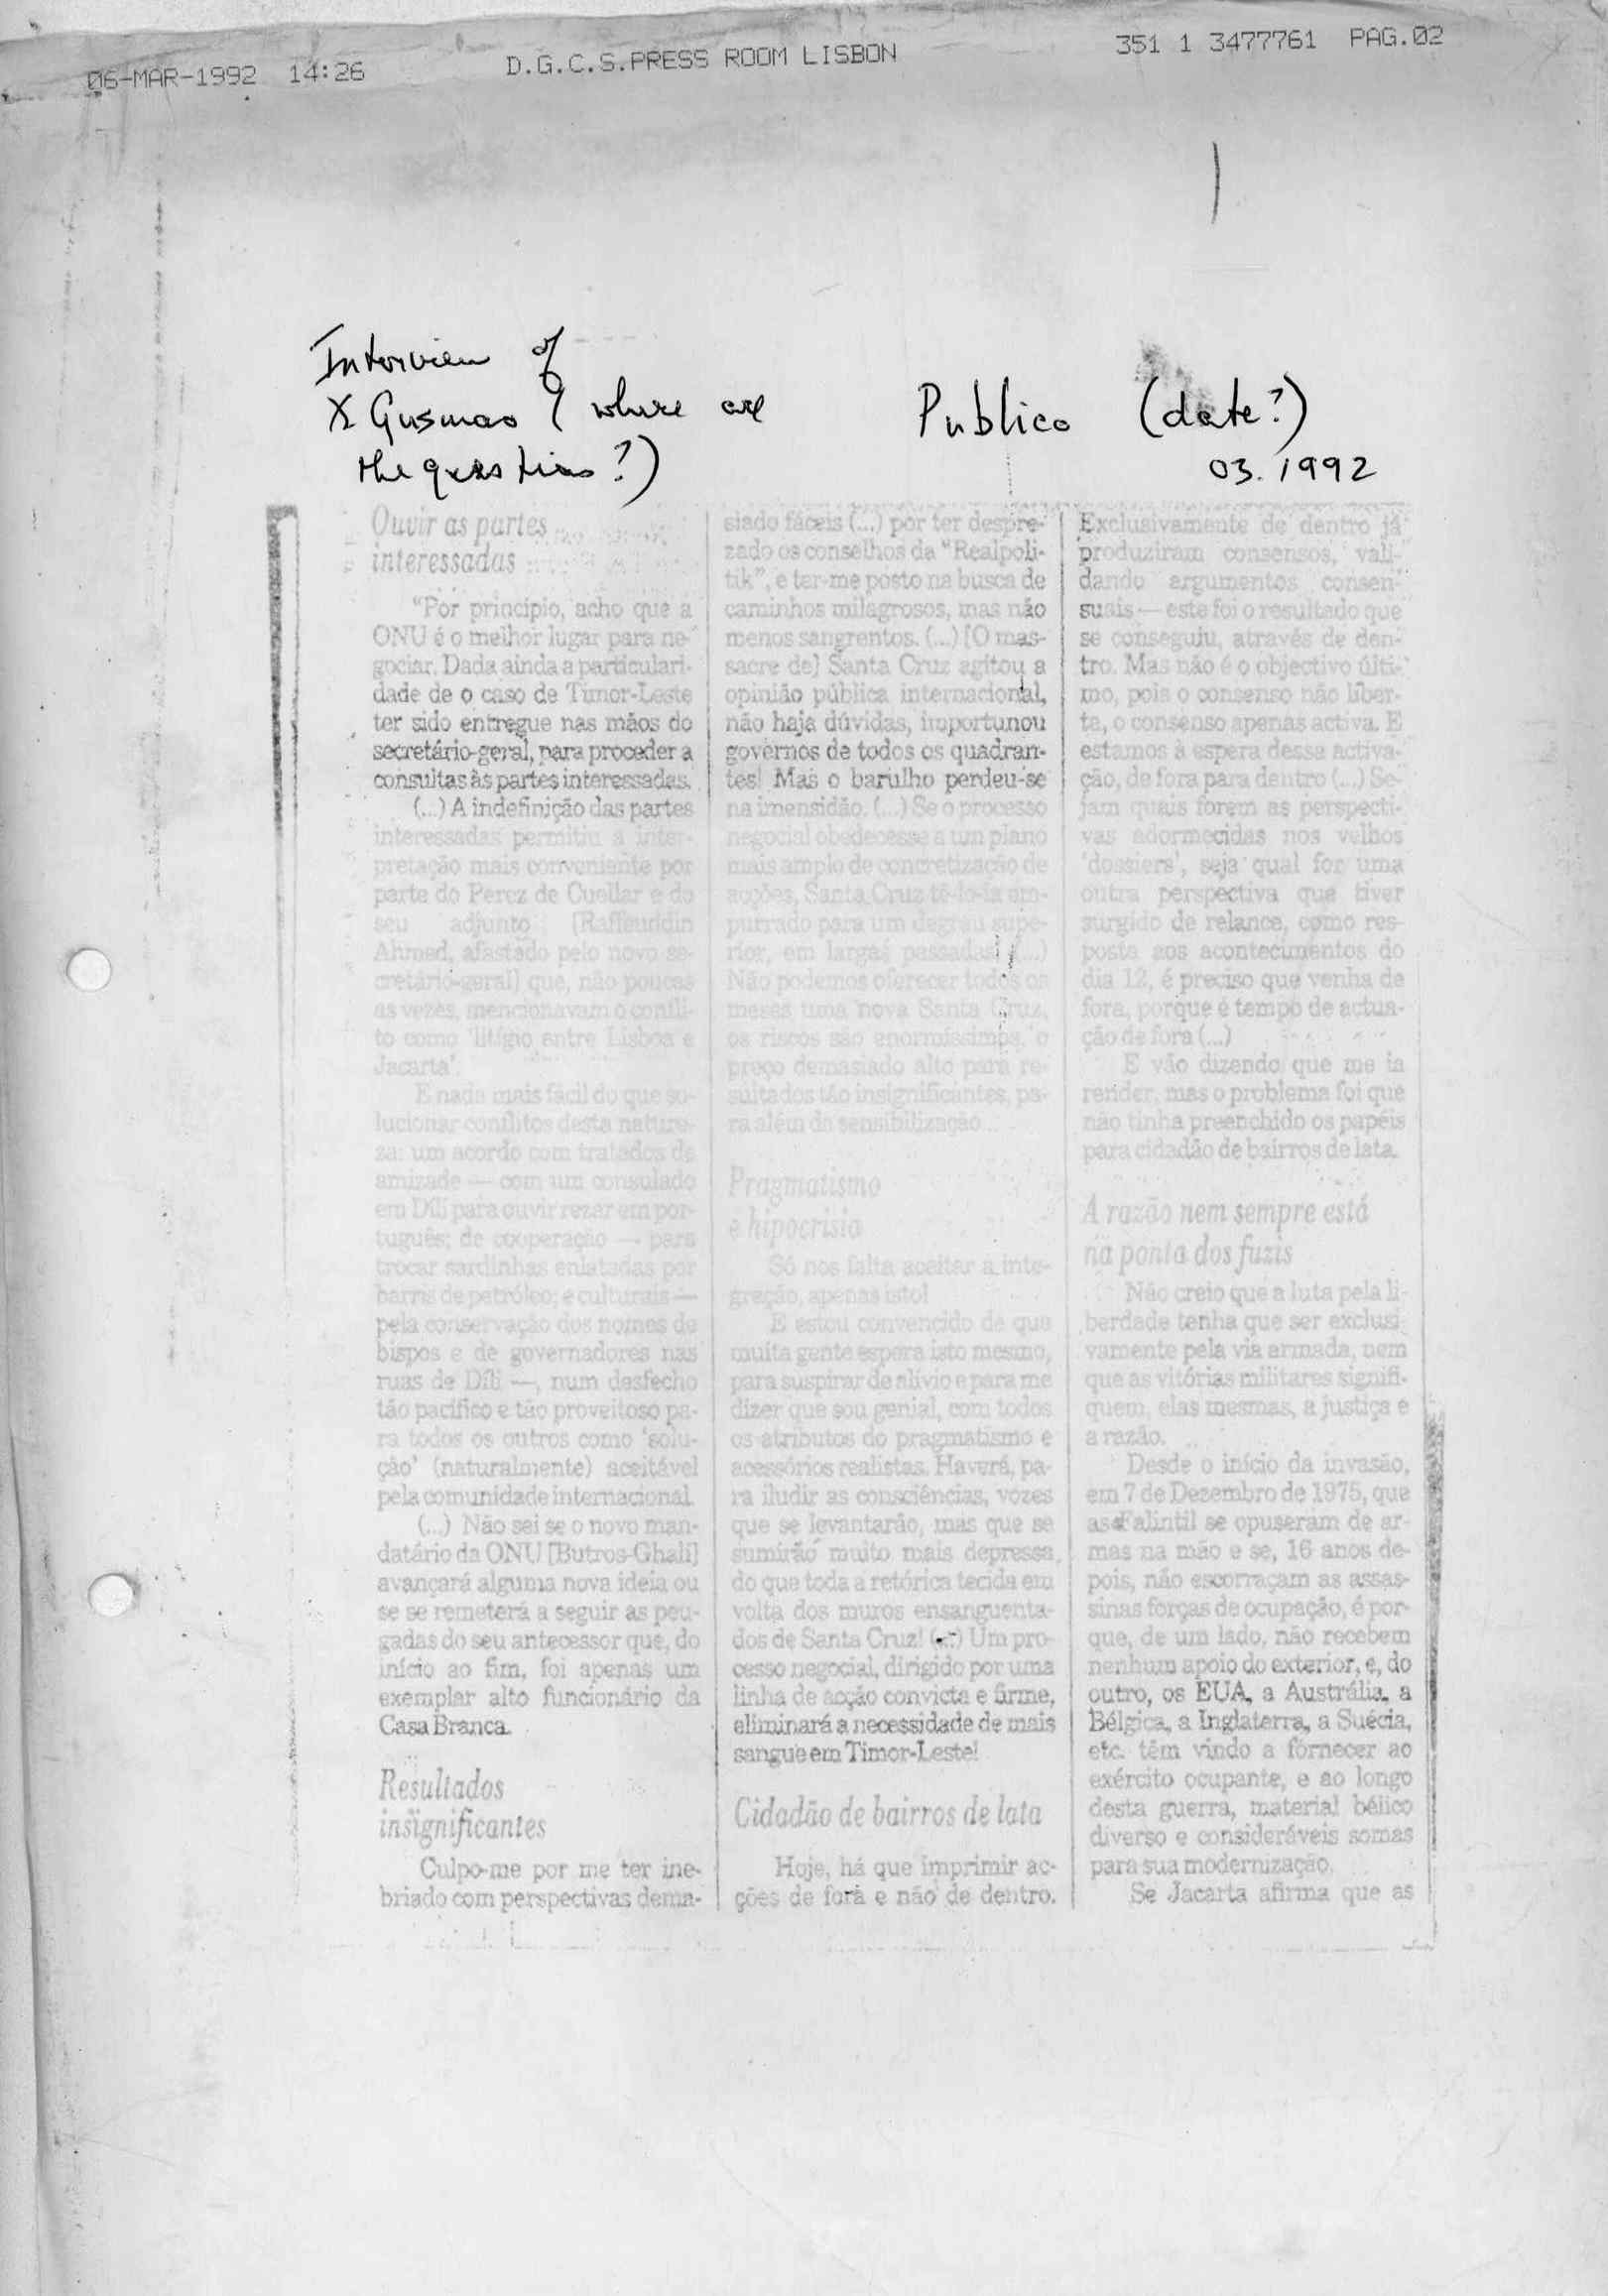 06-MAR-1992 14:26 D.G.C.S.PRESS ROOM LISBON 351 1 3477761 PAG.02
Interview of
X Gusmao (where are
the questions?)
Publico (date?)
03.1992
Ouvir as partes
interessadas
"Por princípio, acho que a
ONU é o melhor lugar para ne-
gociar. Dada ainda a particulari-
dade de o caso de Timor-Leste
ter sido entregue nas mãos do
secretário-geral, para proceder a
consultas às partes interessadas.
(...) A indefinição das partes
interessadas permitiu a inter-
pretação mais conveniente por
parte do Perez de Cuellar e do
seu adjunto [Raffeuddin
Ahmed, afastado pelo novo se-
cretário-geral] que, não poucas
as vezes, mencionavam o confli-
to como 'litígio entre Lisboa e
Jacarta'.
E nada mais fácil do que so-
lucionar conflitos desta nature-
za: um acordo com tratados de
amizade — com um consulado
em Díli para ouvir rezar em por-
tuguês; de cooperação — para
trocar sardinhas enlatadas por
barris de petróleo; e culturais —
pela conservação dos nomes de
bispos e de governadores nas
ruas de Díli —, num desfecho
tão pacífico e tão proveitoso pa-
ra todos os outros como 'solu-
ção' (naturalmente) aceitável
pela comunidade internacional.
(...) Não sei se o novo man-
datário da ONU [Butros-Ghali]
avançará alguma nova ideia ou
se se remeterá a seguir as peu-
gadas do seu antecessor que, do
início ao fim, foi apenas um
exemplar alto funcionário da
Casa Branca.
Resultados
insignificantes
Culpo-me por me ter ine-
briado com perspectivas dema-
siado fáceis (...) por ter despre-
zado os conselhos da "Realpoli-
tik", e ter-me posto na busca de
caminhos milagrosos, mas não
menos sangrentos. (...) [O mas-
sacre de] Santa Cruz agitou a
opinião pública internacional,
não haja dúvidas, importunou
governos de todos os quadran-
tes! Mas o barulho perdeu-se
na imensidão. (...) Se o processo
negocial obedecesse a um plano
mais amplo de concretização de
acções, Santa Cruz tê-lo-ia em-
purrado para um degrau supe-
rior, em largas passadas! (...)
Não podemos oferecer todos os
meses uma nova Santa Cruz,
os riscos são enormíssimos, o
preço demasiado alto para re-
sultados tão insignificantes, pa-
ra além da sensibilização...
Pragmatismo
e hipocrisia
Só nos falta aceitar a inte-
gração, apenas isto!
E estou convencido de que
muita gente espera isto mesmo,
para suspirar de alívio e para me
dizer que sou genial, com todos
os atributos do pragmatismo e
acessórios realistas. Haverá, pa-
ra iludir as consciências, vozes
que se levantarão, mas que se
sumirão muito mais depressa
do que toda a retórica tecida em
volta dos muros ensanguenta-
dos de Santa Cruz! (...) Um pro-
cesso negocial, dirigido por uma
linha de acção convicta e firme,
eliminará a necessidade de mais
sangue em Timor-Leste!
Cidadão de bairros de lata
Hoje, há que imprimir ac-
ções de fora e não de dentro.
Exclusivamente de dentro já
produziram consensos, vali-
dando argumentos consen-
suais — este foi o resultado que
se conseguiu, através de den-
tro. Mas não é o objectivo últi-
mo, pois o consenso não liber-
ta, o consenso apenas activa. E
estamos à espera dessa activa-
ção, de fora para dentro (...) Se-
jam quais forem as perspecti-
vas adormecidas nos velhos
'dossiers', seja qual for uma
outra perspectiva que tiver
surgido de relance, como res-
posta aos acontecimentos do
dia 12, é preciso que venha de
fora, porque é tempo de actua-
ção de fora (...)
E vão dizendo que me ia
render, mas o problema foi que
não tinha preenchido os papéis
para cidadão de bairros de lata.
A razão nem sempre está
na ponta dos fuzis
Não creio que a luta pela li-
berdade tenha que ser exclusi-
vamente pela via armada, nem
que as vitórias militares signifi-
quem, elas mesmas, a justiça e
a razão.
Desde o início da invasão,
em 7 de Dezembro de 1975, que
as Falintil se opuseram de ar-
mas na mão e se, 16 anos de-
pois, não escorraçam as assas-
sinas forças de ocupação, é por-
que, de um lado, não recebem
nenhum apoio do exterior, e, do
outro, os EUA, a Austrália, a
Bélgica, a Inglaterra, a Suécia,
etc. têm vindo a fornecer ao
exército ocupante, e ao longo
desta guerra, material bélico
diverso e consideráveis somas
para sua modernização.
Se Jacarta afirma que as